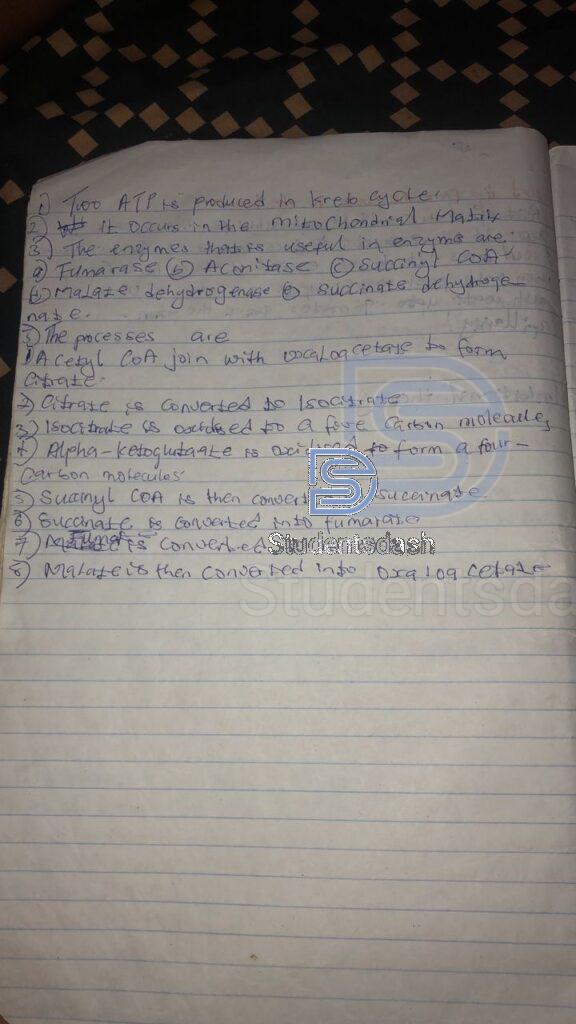 1) Two ATP is produced in Kreb cycle.
2) it occurs in the mitochondrial Matrix
3) The enzymes that is useful in enzyme are
a) Fumarase (b) Aconitase (c) Succinyl COA
(d) Malate dehydrogenase (e) Succinate dehydroge
nate.
5) The processes are
1) Acetyl CoA join with oxaloacetate to form
Citrate.
2) Citrate is converted to Isocitrate
3) Isocitrate is oxidised to a five carbon molecules
4) Alpha-ketoglutaate is oxidised to form a four-
Carbon molecules
5) Succinyl COA is then convert succinate.
6) Succinate is converted into fumarate
7) Fumate is converted
Studentsdash
8) Malate is then converted into oxaloacetate
Studentsda